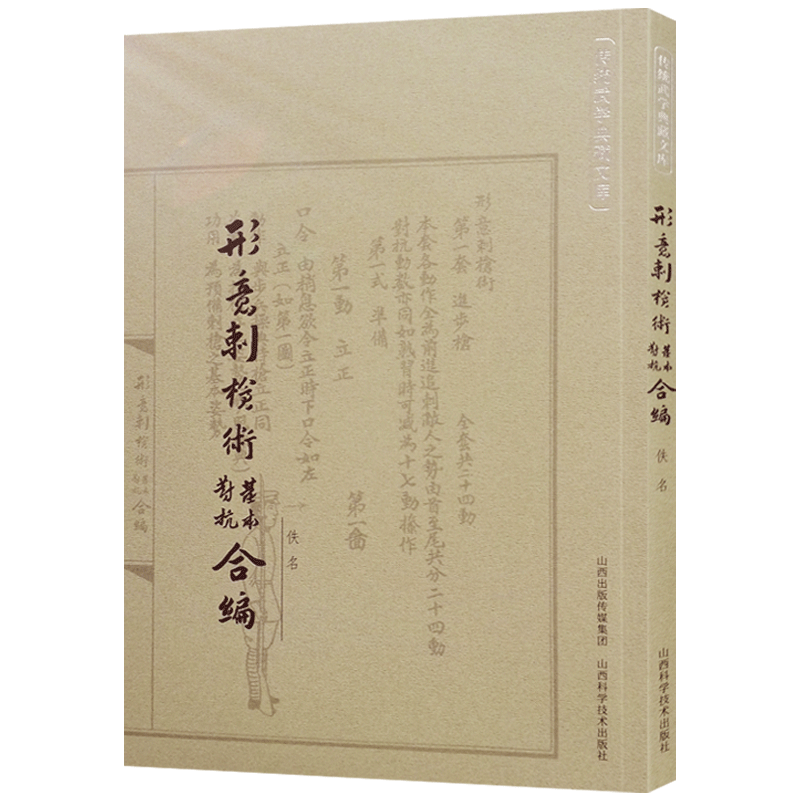 形意刺槍術
基本
對抗
合編
佚名
传统武学典籍文库
山西出版传媒集团 山西科学技术出版社
形意刺槍術
第一套 進步槍 全套共二十四動
本套各動作全為前進追刺敵人之勢由首至尾共分二十四動
對抗動數亦同如熟習時可減為十七動操作
第一式 準備
第一動 立正
第一圖
口令 由稍息欲令立正時下口令如左
立正(如第一圖)
功用 為預備刺槍之基本姿勢
形意刺槍術
基本
對抗
合編
传统武学典籍文库
形意刺槍術
基本
對抗
合編
佚名
山西科学技术出版社